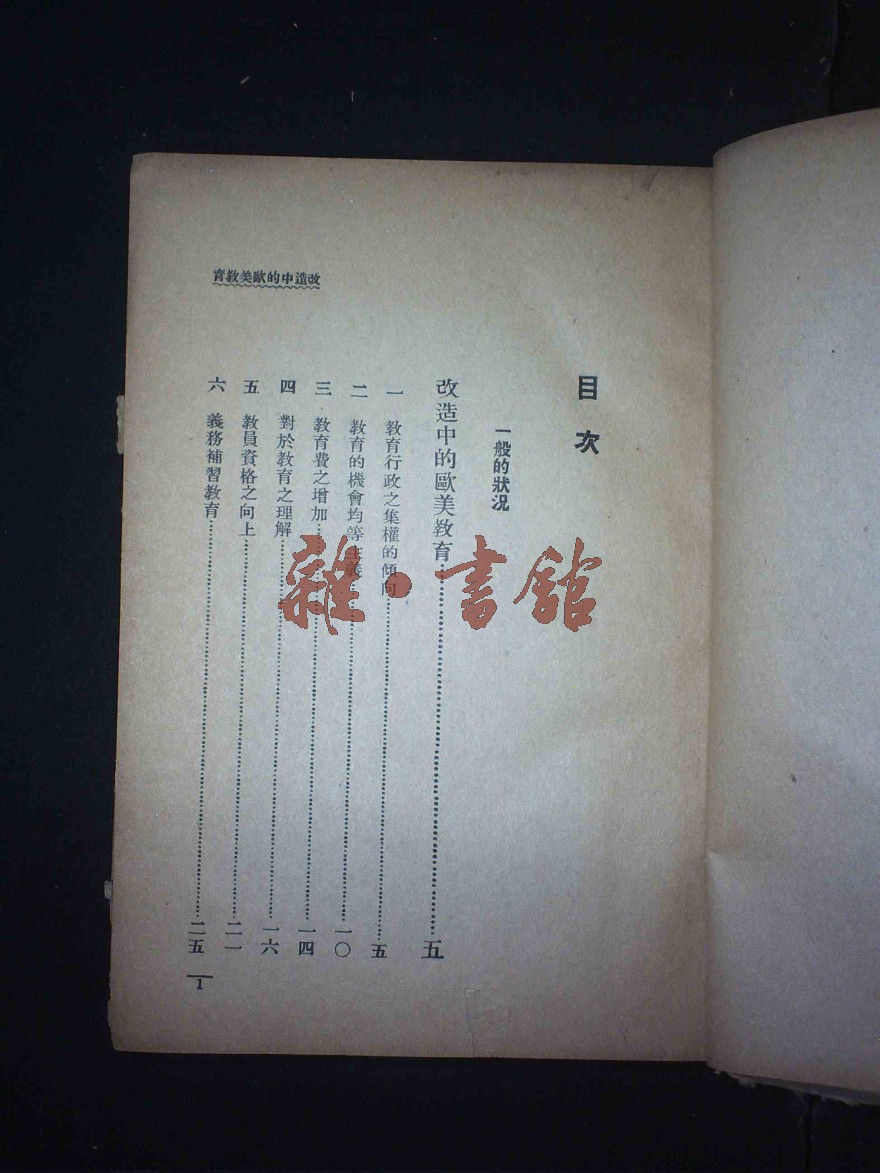 改造中的歐美教育
目次
一般的狀況
改造中的歐美教育……五
一 教育行政之集權的傾向……五
二 教育的機會均等主義……一〇
三 教育費之增加……一四
四 對於教育之理解……一六
五 教員資格之向上……二一
六 義務補習教育……二五
1
雜·書館